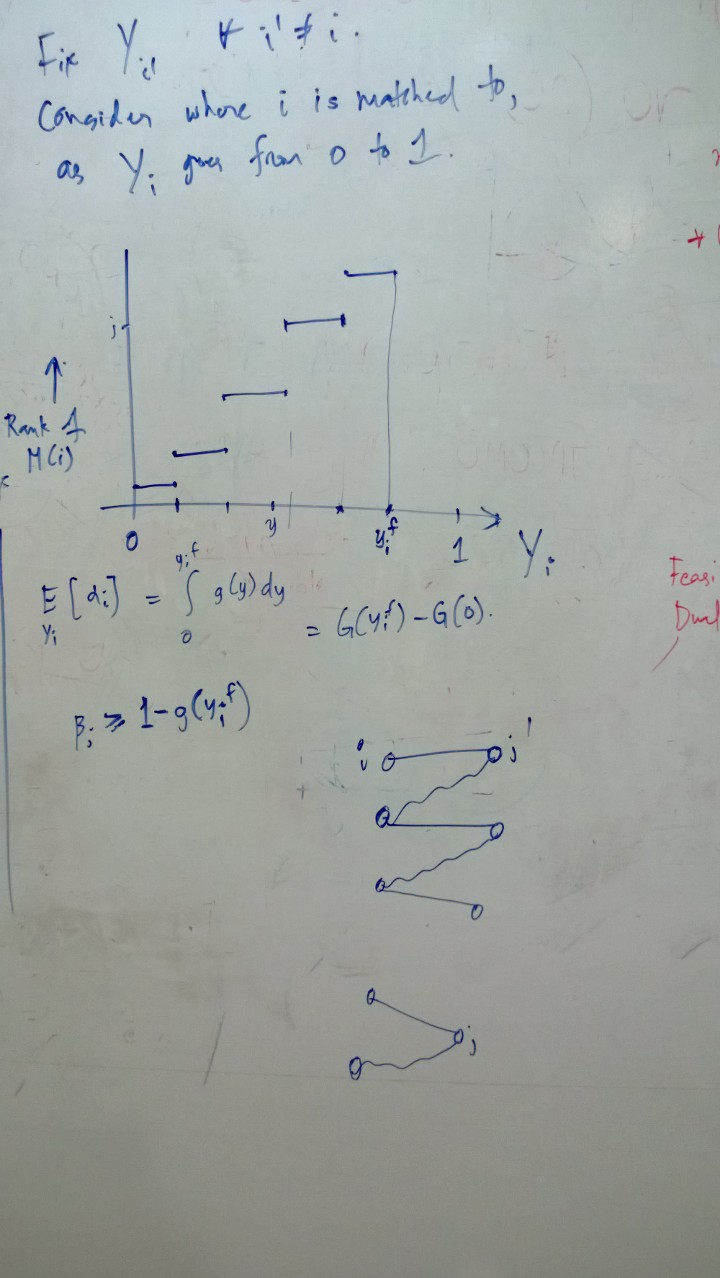 Fix Y_i' ∀ i' ≠ i.
Consider where i is matched to,
as Y_i goes from 0 to 1.
j
↑
Rank of
M(i)
0 y y_i^f 1 Y_i
E_{Y_i} [α_i] = ∫_0^{y_i^f} g(y) dy = G(y_i^f) - G(0).
β_j ≥ 1 - g(y_i^f)
i j'
j
Feasi
Dual